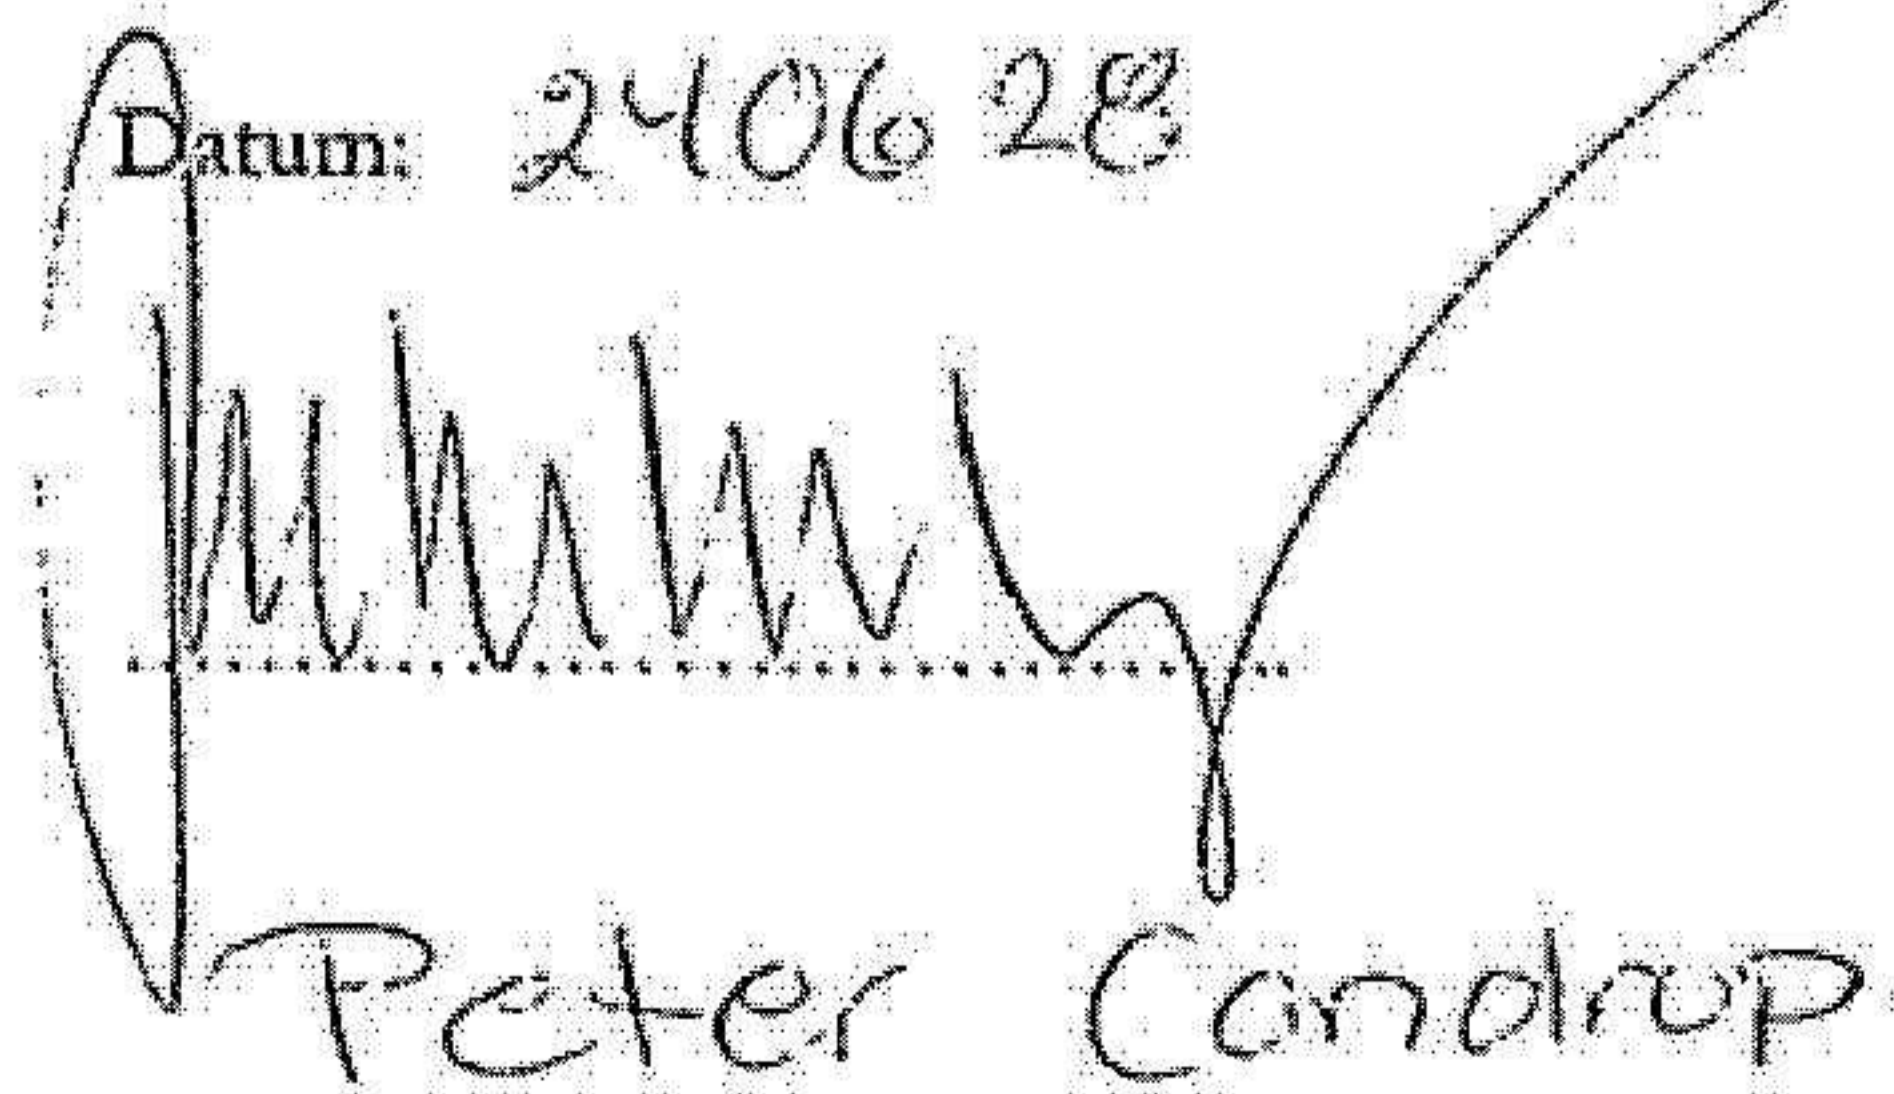 Datum: 240628
Peter Condrup